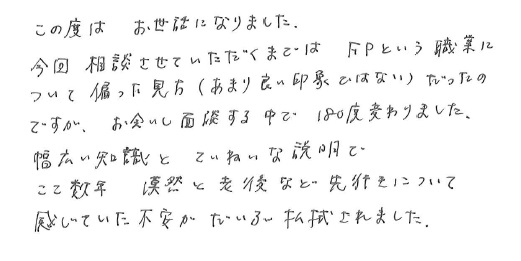 この度は お世話になりました.
今回 相談させていただくまでは FPという職業に
ついて偏った見方(あまり良い印象ではない)だったの
ですが、お会いし面談する中で 180度変わりました、
幅広い知識と ていねいな説明で
ここ数年 漠然と老後など先行きについて
感じていた不安が だいぶ払拭されました.